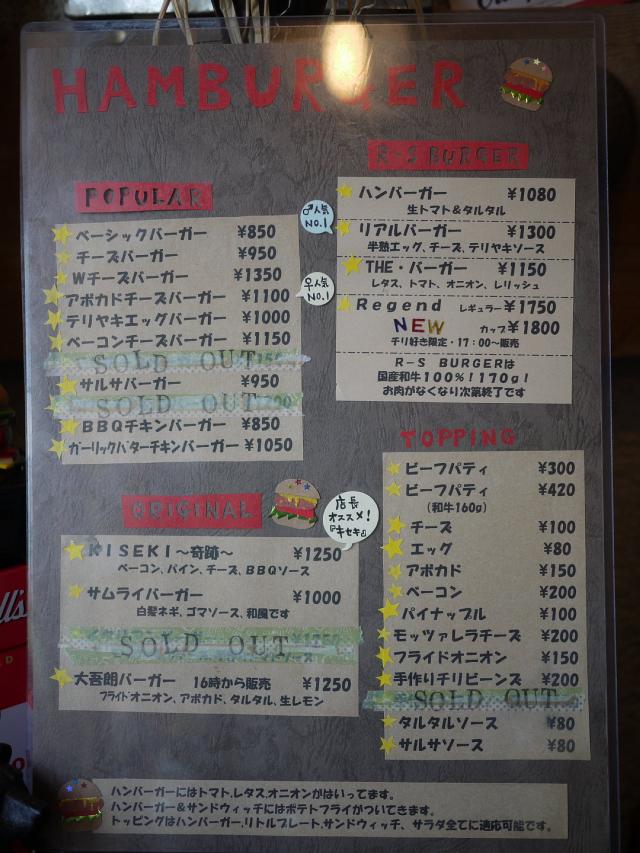 HAMBURGER
POPULAR
♂人気
NO.1
ベーシックバーガー ¥850
チーズバーガー ¥950
Wチーズバーガー ¥1350
アボカドチーズバーガー ¥1100
♀人気
NO.1
テリヤキエッグバーガー ¥1000
ベーコンチーズバーガー ¥1150
SOLD OUT
サルサバーガー ¥950
SOLD OUT
BBQチキンバーガー ¥850
ガーリックバターチキンバーガー ¥1050
R-S BURGER
ハンバーガー ¥1080
生トマト&タルタル
リアルバーガー ¥1300
半熟エッグ、チーズ、テリヤキソース
THE・バーガー ¥1150
レタス、トマト、オニオン、レリッシュ
Regend レギュラー¥1750
NEW カップ¥1800
チリ好き限定・17:00~販売
R-S BURGERは
国産和牛100%!170g!
お肉がなくなり次第終了です
ORIGINAL
店長
オススメ!
『キセキ』
KISEKI~奇跡~ ¥1250
ベーコン、パイン、チーズ、BBQソース
サムライバーガー ¥1000
白髪ネギ、ゴマソース、和風です
SOLD OUT
大吾朗バーガー 16時から販売 ¥1250
フライドオニオン、アボカド、タルタル、生レモン
TOPPING
ビーフパティ ¥300
ビーフパティ ¥420
(和牛160g)
チーズ ¥100
エッグ ¥80
アボカド ¥150
ベーコン ¥200
パイナップル ¥100
モッツァレラチーズ ¥200
フライドオニオン ¥150
手作りチリビーンズ ¥200
SOLD OUT
タルタルソース ¥80
サルサソース ¥80
ハンバーガーにはトマト,レタス,オニオンがはいってます。
ハンバーガー&サンドウィッチにはポテトフライがついてきます。
トッピングはハンバーガー,リトルプレート,サンドウィッチ、サラダ全てに適応可能です。